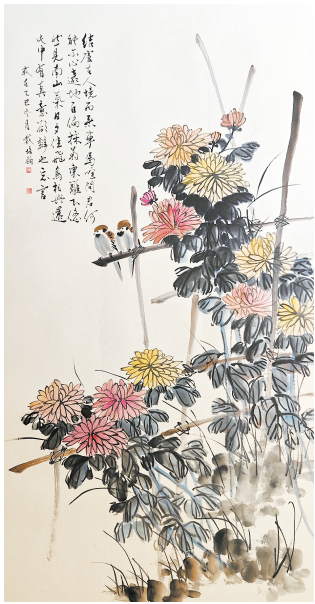 結廬在人境而無車馬喧問君何
能尔心遠地自偏採菊東籬下悠
然見南山氣日夕佳飛鳥相與還
此中有真意欲辯已忘言
歲在乙巳冬月